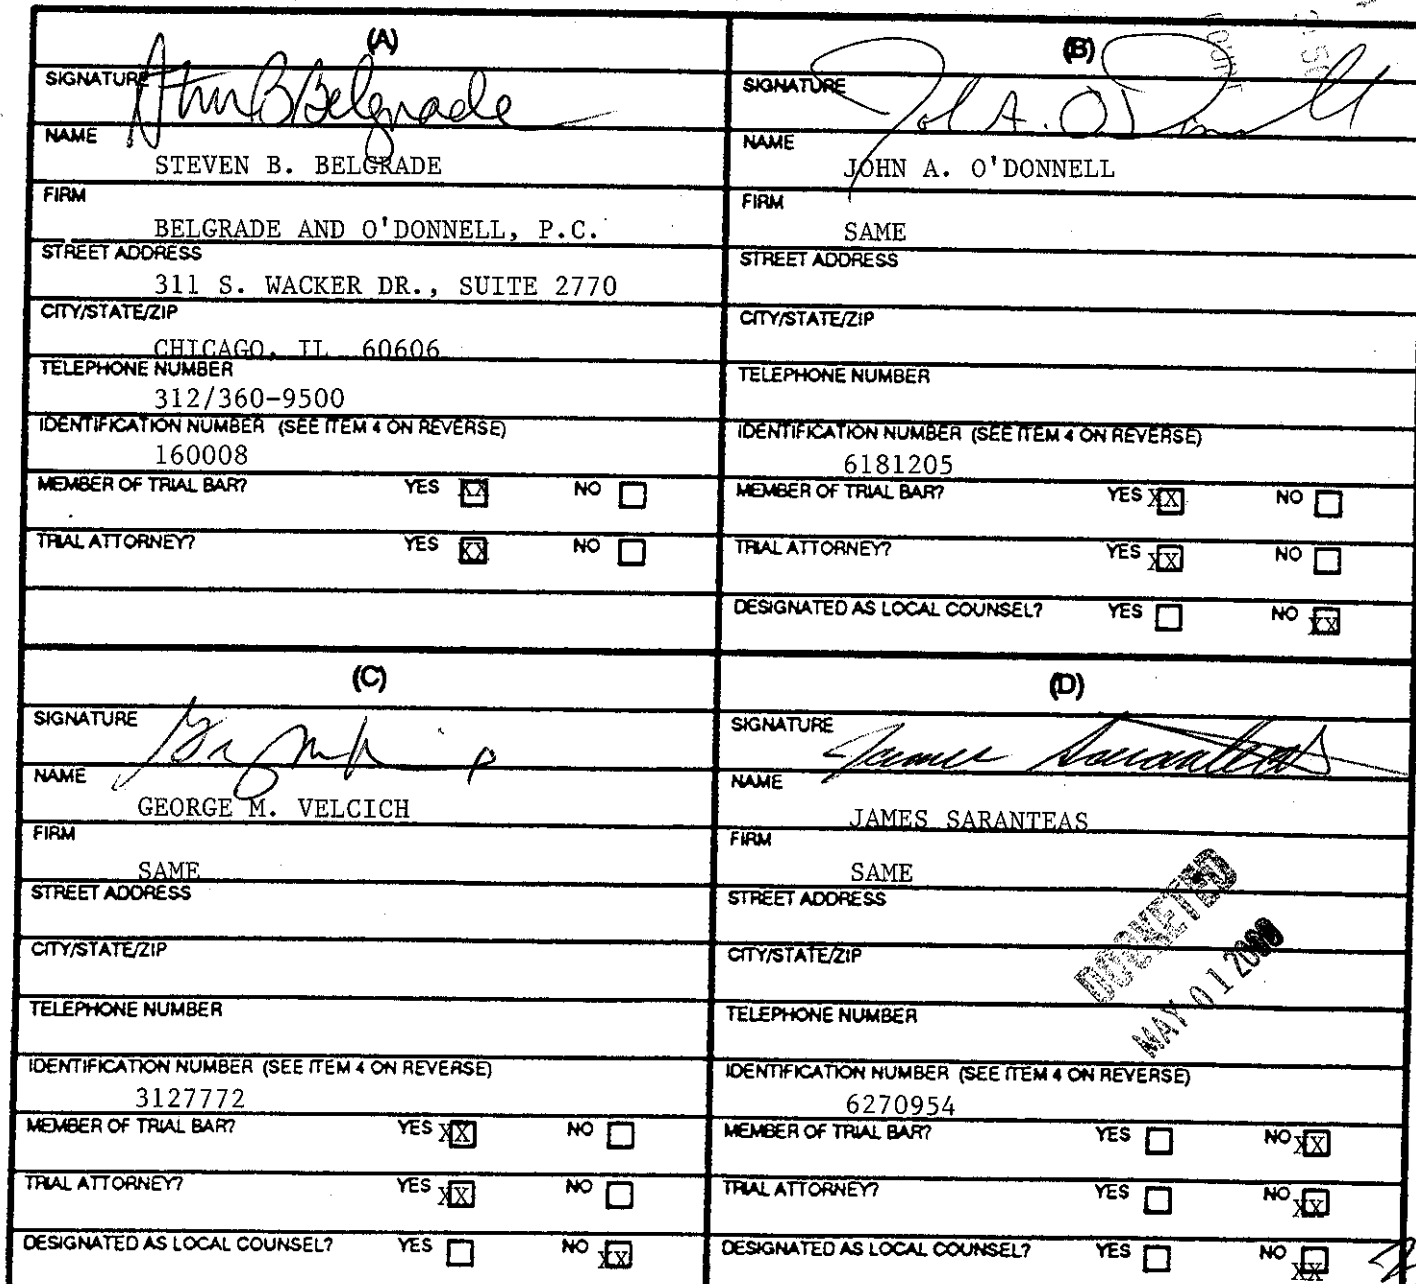 (A)
SIGNATURE Steven B Belgrade
NAME
STEVEN B. BELGRADE
FIRM
BELGRADE AND O'DONNELL, P.C.
STREET ADDRESS
311 S. WACKER DR., SUITE 2770
CITY/STATE/ZIP
CHICAGO, IL 60606
TELEPHONE NUMBER
312/360-9500
IDENTIFICATION NUMBER (SEE ITEM 4 ON REVERSE)
160008
MEMBER OF TRIAL BAR? YES XX NO
TRIAL ATTORNEY? YES XX NO
(B)
SIGNATURE John A. O'Donnell
NAME
JOHN A. O'DONNELL
FIRM
SAME
STREET ADDRESS
CITY/STATE/ZIP
TELEPHONE NUMBER
IDENTIFICATION NUMBER (SEE ITEM 4 ON REVERSE)
6181205
MEMBER OF TRIAL BAR? YES XX NO
TRIAL ATTORNEY? YES XX NO
DESIGNATED AS LOCAL COUNSEL? YES NO XX
(C)
SIGNATURE
NAME
GEORGE M. VELCICH
FIRM
SAME
STREET ADDRESS
CITY/STATE/ZIP
TELEPHONE NUMBER
IDENTIFICATION NUMBER (SEE ITEM 4 ON REVERSE)
3127772
MEMBER OF TRIAL BAR? YES XX NO
TRIAL ATTORNEY? YES XX NO
DESIGNATED AS LOCAL COUNSEL? YES NO XX
(D)
SIGNATURE James Saranteas
NAME
JAMES SARANTEAS
FIRM
SAME
STREET ADDRESS
CITY/STATE/ZIP
DOCKETED
MAY 01 2000
TELEPHONE NUMBER
IDENTIFICATION NUMBER (SEE ITEM 4 ON REVERSE)
6270954
MEMBER OF TRIAL BAR? YES NO XX
TRIAL ATTORNEY? YES NO XX
DESIGNATED AS LOCAL COUNSEL? YES NO XX